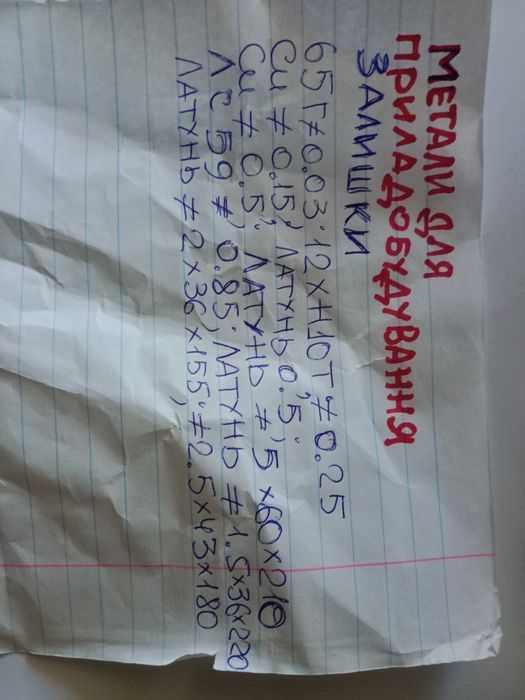 МЕТАЛИ ДЛЯ
ПРИЛАДОБУДУВАННЯ
ЗАЛИШКИ
65Г ≠ 0.03; 12ХН10Т ≠ 0.25
Cu ≠ 0.15; ЛАТУНЬ 0,5;
Cu ≠ 0.5; ЛАТУНЬ ≠ 5×60×210
ЛС 59 ≠ 0.85; ЛАТУНЬ ≠ 1.5×36×220
ЛАТУНЬ ≠ 2×36×155; ≠ 2.5×43×180